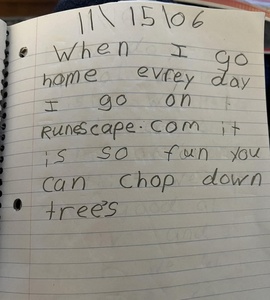 11\15\06
When I go
home evrey day
I go on
RUNESCAPE.COM it
is so fun you
can chop down
tree's